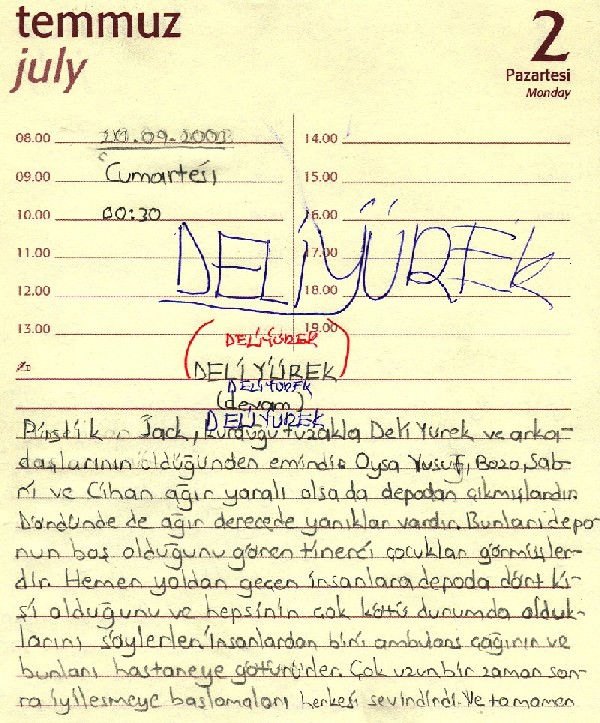 temmuz
july
2
Pazartesi
Monday
08.00
09.00
10.00
11.00
12.00
13.00
14.00
15.00
16.00
17.00
18.00
19.00
Cumartesi
00:30
DELİYÜREK
DELİYÜREK
DELİYÜREK
DELİYÜREK
(devam)
DELİYÜREK
Jack, kurduğu tuzakla Deli Yürek ve arka-
daşlarının öldüğünden emindir. Oysa Yusuf, Bozo, Sab-
ri ve Cihan ağır yaralı olsa da depodan çıkmışlardır.
Dördünde de ağır derecede yanıklar vardır. Bunları depo-
nun boş olduğunu gören tinerci çocuklar görmüşler-
dir. Hemen yoldan geçen insanlara depoda dört ki-
şi olduğunu ve hepsinin çok kötü durumda olduk-
larını söylerler. İnsanlardan biri ambulans çağırır ve
bunları hastaneye götürürler. Çok uzun bir zaman son-
ra iyileşmeye başlamaları herkesi sevindirdi. Ve tamamen